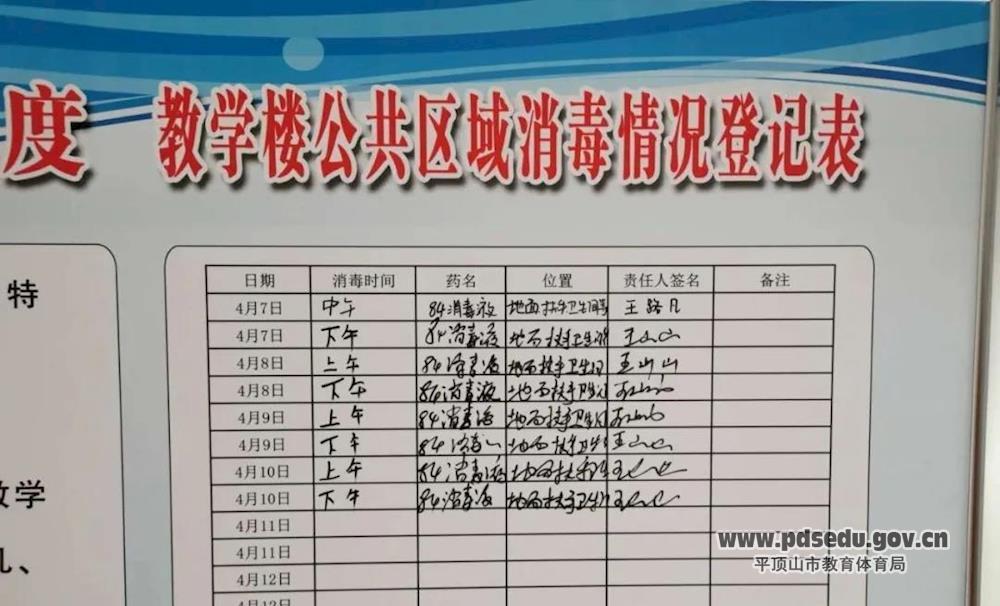 度 教学楼公共区域消毒情况登记表
特
教学
日期 消毒时间 药名 位置 责任人签名 备注
4月7日 中午 84消毒液 地面扶手卫生间
4月7日 下午 84消毒液 地面扶手卫生间 王山山
4月8日 上午 84消毒液 地面扶手卫生间 王山山
4月8日 下午 84消毒液 地面扶手卫生间
4月9日 上午 84消毒液 地面扶手卫生间
4月9日 下午 84消毒 地面扶手卫生 王山山
4月10日 上午 84消毒液 地面扶手
4月10日 下午 84消毒液 地面扶手卫生间
4月11日
4月11日
4月12日
4月12日
www.pdsedu.gov.cn
平顶山市教育体育局